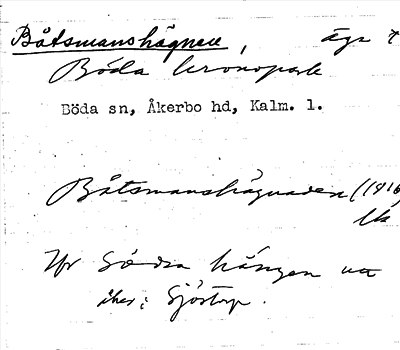 Båtsmanshägnen, äga t
Böda kronopark
Böda sn, Åkerbo hd, Kalm. l.
Båtsmanshägnaden (1816)
Södra hängen
åker i Sjöstorp.